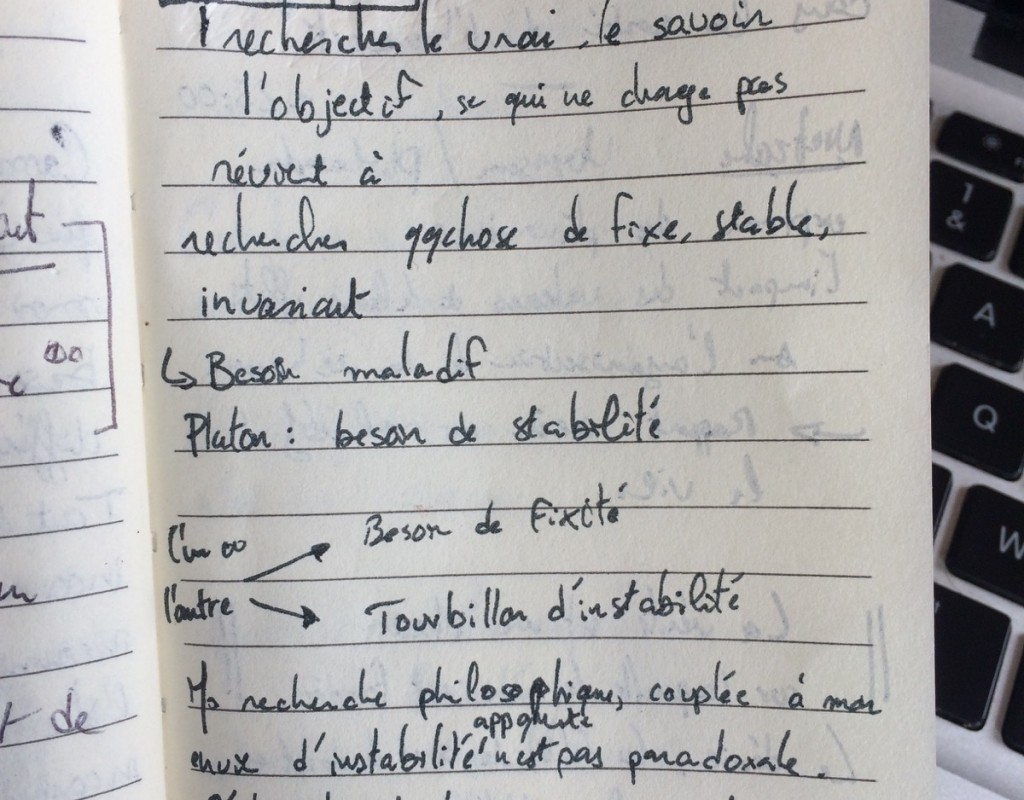 rechercher le vrai, le savoir
l'objectif, se qui ne change pas
revient à
rechercher qqchose de fixe, stable,
invariant
↳ Besoin maladif
Platon : besoin de stabilité
Besoin de fixité
l'un ou
l'autre
Tourbillon d'instabilité
Ma recherche philosophique, couplée à mon
apparente
d'instabilité n'est pas paradoxale.
1
&
A
Q
W
de